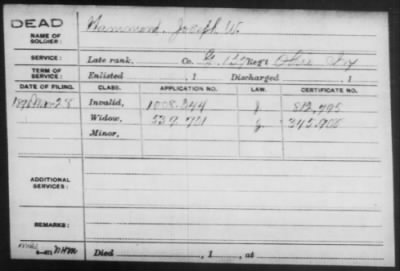 DEAD
NAME OF SOLDIER: Hammond, Joseph W.
SERVICE: Late rank, Co. G, 127 Reg't Ohio Inf
TERM OF SERVICE: Enlisted , 1 Discharged , 1
DATE OF FILING. CLASS. APPLICATION NO. LAW. CERTIFICATE NO.
Invalid, 1008.244 J.
Widow, J. 345.908
Minor,
ADDITIONAL SERVICES:
REMARKS:
Died , 1 , at